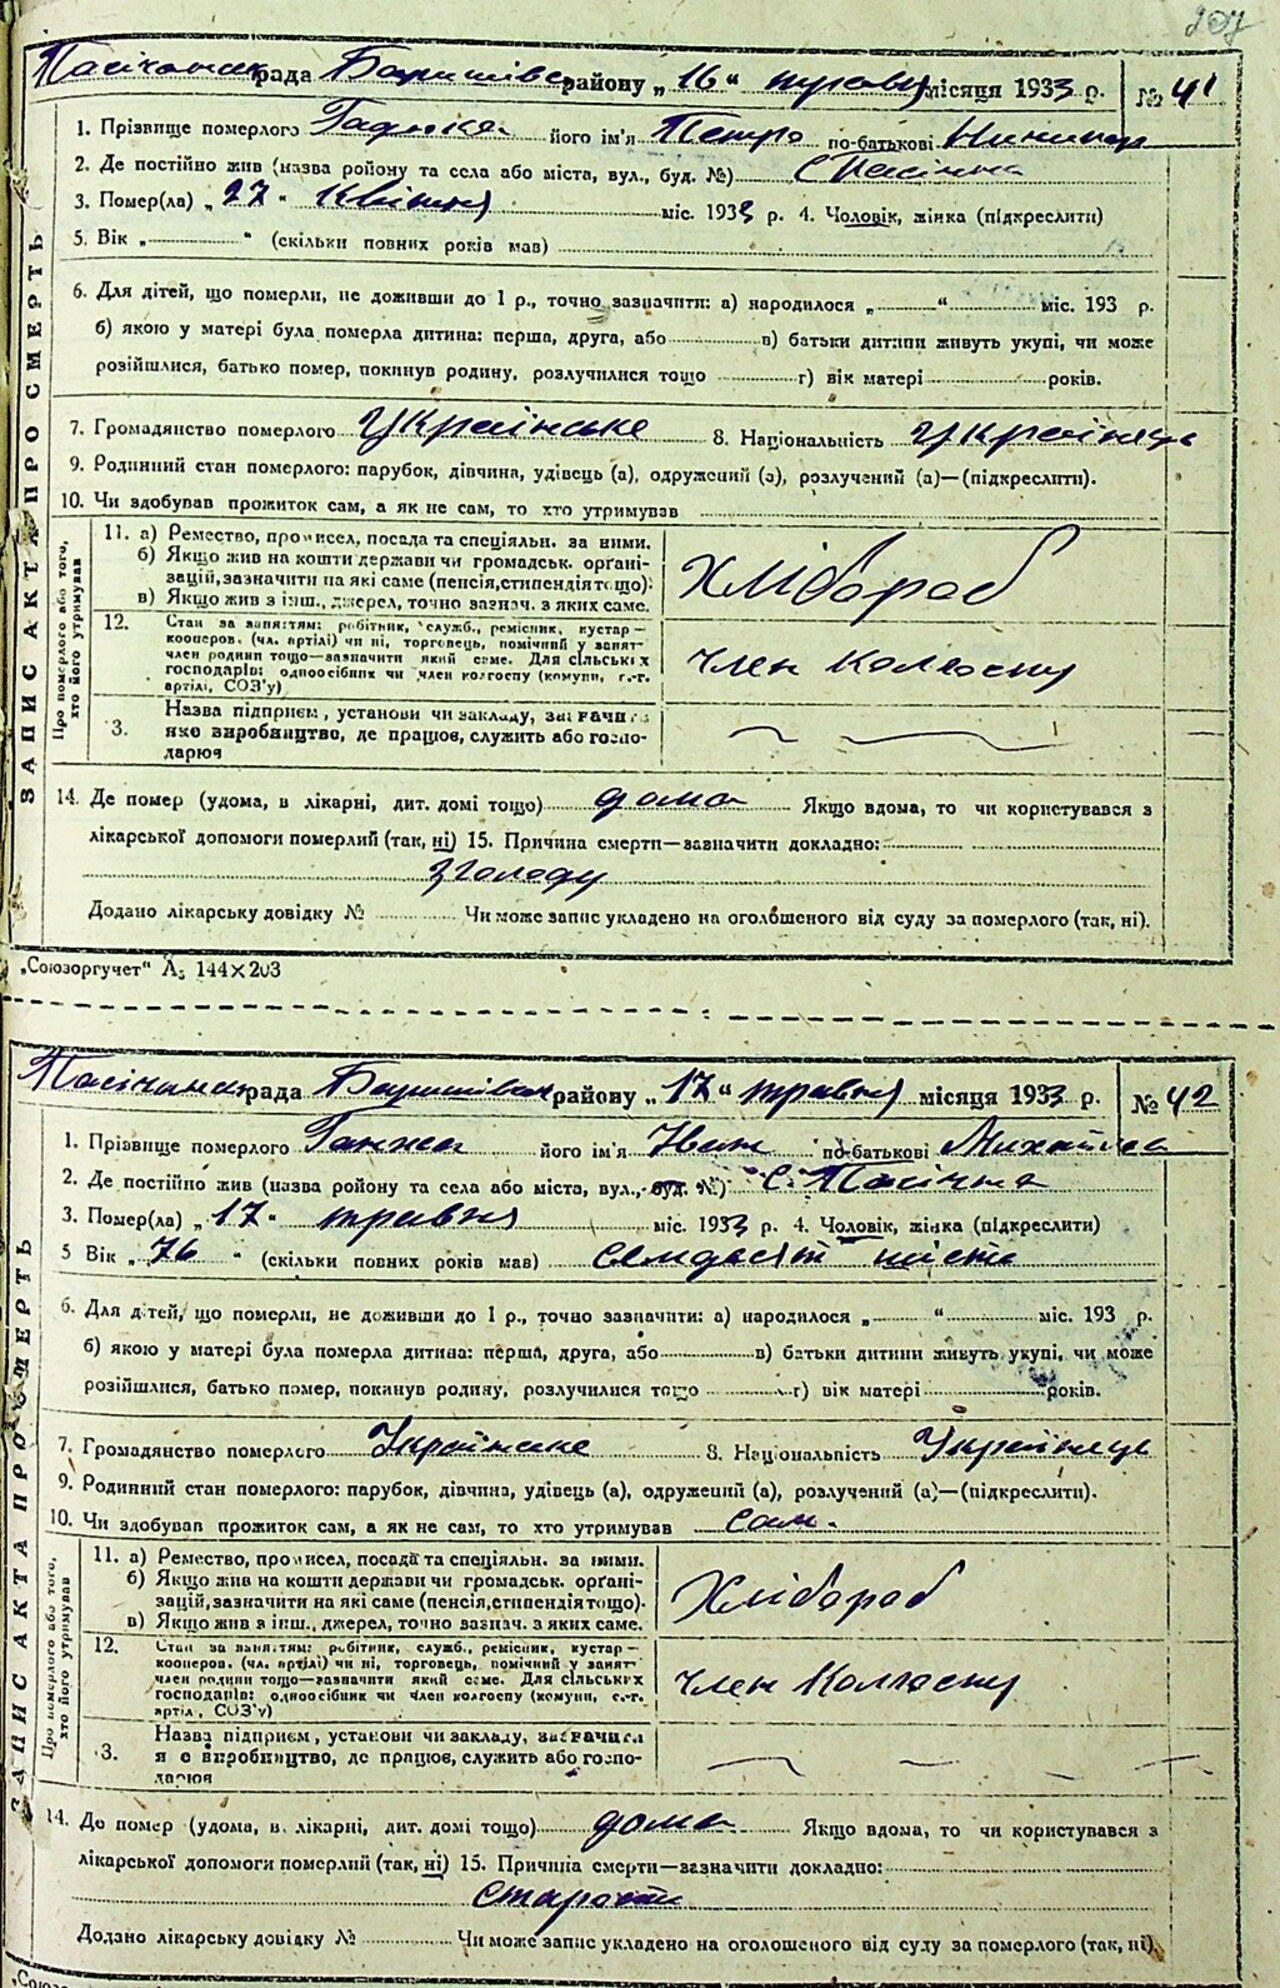 207
рада району „16“ травня місяця 1933 р. № 41
1. Прізвище померлого його ім'я Петро по-батькові
2. Де постійно жив (назва ройону та села або міста, вул., буд. №) с Пасічна
3. Помер(ла) „27“ Квітня міс. 1933 р. 4. Чоловік, жінка (підкреслити)
5. Вік „ “ (скільки повних років мав)
6. Для дітей, що померли, не доживши до 1 р., точно зазначити: а) народилося „ “ міс. 193 р.
б) якою у матері була померла дитина: перша, друга, або в) батьки дитини живуть укупі, чи може
розійшлися, батько помер, покинув родину, розлучилися тощо г) вік матері років.
7. Громадянство померлого Українське 8. Національність Українець
9. Родинний стан померлого: парубок, дівчина, удівець (а), одружений (а), розлучений (а)—(підкреслити).
10. Чи здобував прожиток сам, а як не сам, то хто утримував
ЗАПИС АКТА ПРО СМЕРТЬ
Про померлого або того, хто його утримував
11. а) Ремество, промисел, посада та спеціяльн. за ними.
б) Якщо жив на кошти держави чи громадськ. орґані-
зацій, зазначити на які саме (пенсія, стипендія тощо).
в) Якщо жив з інш., джерел, точно зазнач. з яких саме.
Хлібороб
12. Стан за заняттям: робітник, служб., ремісник, кустар—
кооперов. (чл. артілі) чи ні, торговець, помічний у занят-
член родини тощо—зазначити який саме. Для сільських
господарів: одноосібник чи член колгоспу (комуни, с.-г.
артілі, СОЗ'у)
член Колгоспу
3. Назва підприєм., установи чи закладу, зазначити
яке виробництво, де працює, служить або госпо-
дарює
14. Де помер (удома, в лікарні, дит. домі тощо) дома Якщо вдома, то чи користувався з
лікарської допомоги померлий (так, ні) 15. Причина смерти—зазначити докладно:
з голоду
Додано лікарську довідку № Чи може запис укладено на оголошеного від суду за померлого (так, ні).
„Союзоргучет“ А₅ 144×203
рада району „17“ травня місяця 1933 р. № 42
1. Прізвище померлого Ганжа його ім'я Іван по-батькові
2. Де постійно жив (назва ройону та села або міста, вул., буд. №) с. Пасічна
3. Помер(ла) „17“ травня міс. 1933 р. 4. Чоловік, жінка (підкреслити)
5 Вік „76“ (скільки повних років мав) семдесят шість
6. Для дітей, що померли, не доживши до 1 р., точно зазначити: а) народилося „ “ міс. 193 р.
б) якою у матері була померла дитина: перша, друга, або в) батьки дитини живуть укупі, чи може
розійшлися, батько помер, покинув родину, розлучилися тощо г) вік матері років.
7. Громадянство померлого Українське 8. Національність Українець
9. Родинний стан померлого: парубок, дівчина, удівець (а), одружений (а), розлучений (а)—(підкреслити).
10. Чи здобував прожиток сам, а як не сам, то хто утримував сам.
ЗАПИС АКТА ПРО СМЕРТЬ
Про померлого або того, хто його утримував
11. а) Ремество, промисел, посада та спеціяльн. за ними.
б) Якщо жив на кошти держави чи громадськ. орґані-
зацій, зазначити на які саме (пенсія, стипендія тощо).
в) Якщо жив з інш., джерел, точно зазнач. з яких саме.
Хлібороб
12. Стан за заняттям: робітник, служб., ремісник, кустар—
кооперов. (чл. артілі) чи ні, торговець, помічний у занят-
член родини тощо—зазначити який саме. Для сільських
господарів: одноосібник чи член колгоспу (комуни, с.-г.
артіл, СОЗ'у)
член Колгоспу
3. Назва підприєм., установи чи закладу, зазначити
яке виробництво, де працює, служить або госпо-
дарює
14. Де помер (удома, в лікарні, дит. домі тощо) дома Якщо вдома, то чи користувався з
лікарської допомоги померлий (так, ні) 15. Причина смерти—зазначити докладно:
старости
Додано лікарську довідку № Чи може запис укладено на оголошеного від суду за померлого (так, ні).